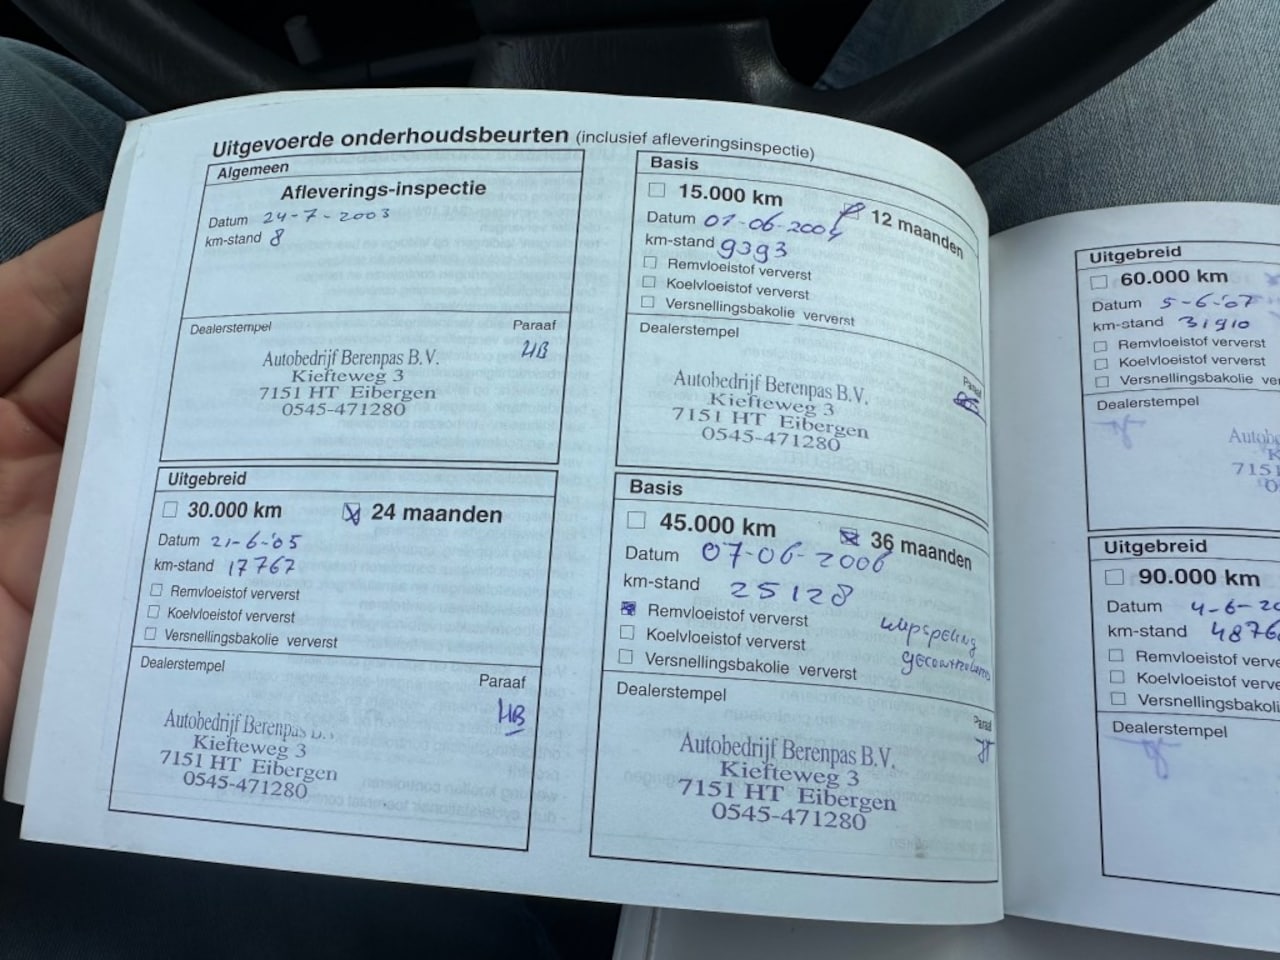 Uitgevoerde onderhoudsbeurten (inclusief afleveringsinspectie)
Algemeen
Afleverings-inspectie
Datum 24-7-2003
km-stand 8
Dealerstempel
Paraaf
HB
Autobedrijf Berenpas B.V.
Kiefteweg 3
7151 HT Eibergen
0545-471280
Basis
15.000 km
12 maanden
Datum 01-06-2004
km-stand 9393
Remvloeistof ververst
Koelvloeistof ververst
Versnellingsbakolie ververst
Dealerstempel
Paraaf
Autobedrijf Berenpas B.V.
Kiefteweg 3
7151 HT Eibergen
0545-471280
Uitgebreid
30.000 km
24 maanden
Datum 21-6-'05
km-stand 17767
Remvloeistof ververst
Koelvloeistof ververst
Versnellingsbakolie ververst
Dealerstempel
Paraaf
HB
Autobedrijf Berenpas B.V.
Kiefteweg 3
7151 HT Eibergen
0545-471280
Basis
45.000 km
36 maanden
Datum 07-06-2006
km-stand 25128
Remvloeistof ververst
Koelvloeistof ververst
Versnellingsbakolie ververst
klepspeling
Dealerstempel
Autobedrijf Berenpas B.V.
Kiefteweg 3
7151 HT Eibergen
0545-471280
Uitgebreid
60.000 km
Datum 5-6-'07
km-stand 31910
Remvloeistof ververst
Koelvloeistof ververst
Versnellingsbakolie ve
Dealerstempel
Autob
K
7151
0
Uitgebreid
90.000 km
Datum 4-6-20
km-stand 4876
Remvloeistof verve
Koelvloeistof verve
Versnellingsbakoli
Dealerstempel